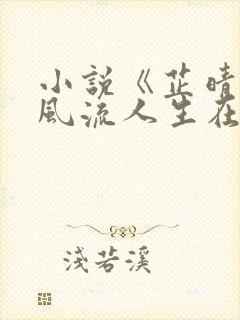 小說《芷晴
風流人生在
淺若溪